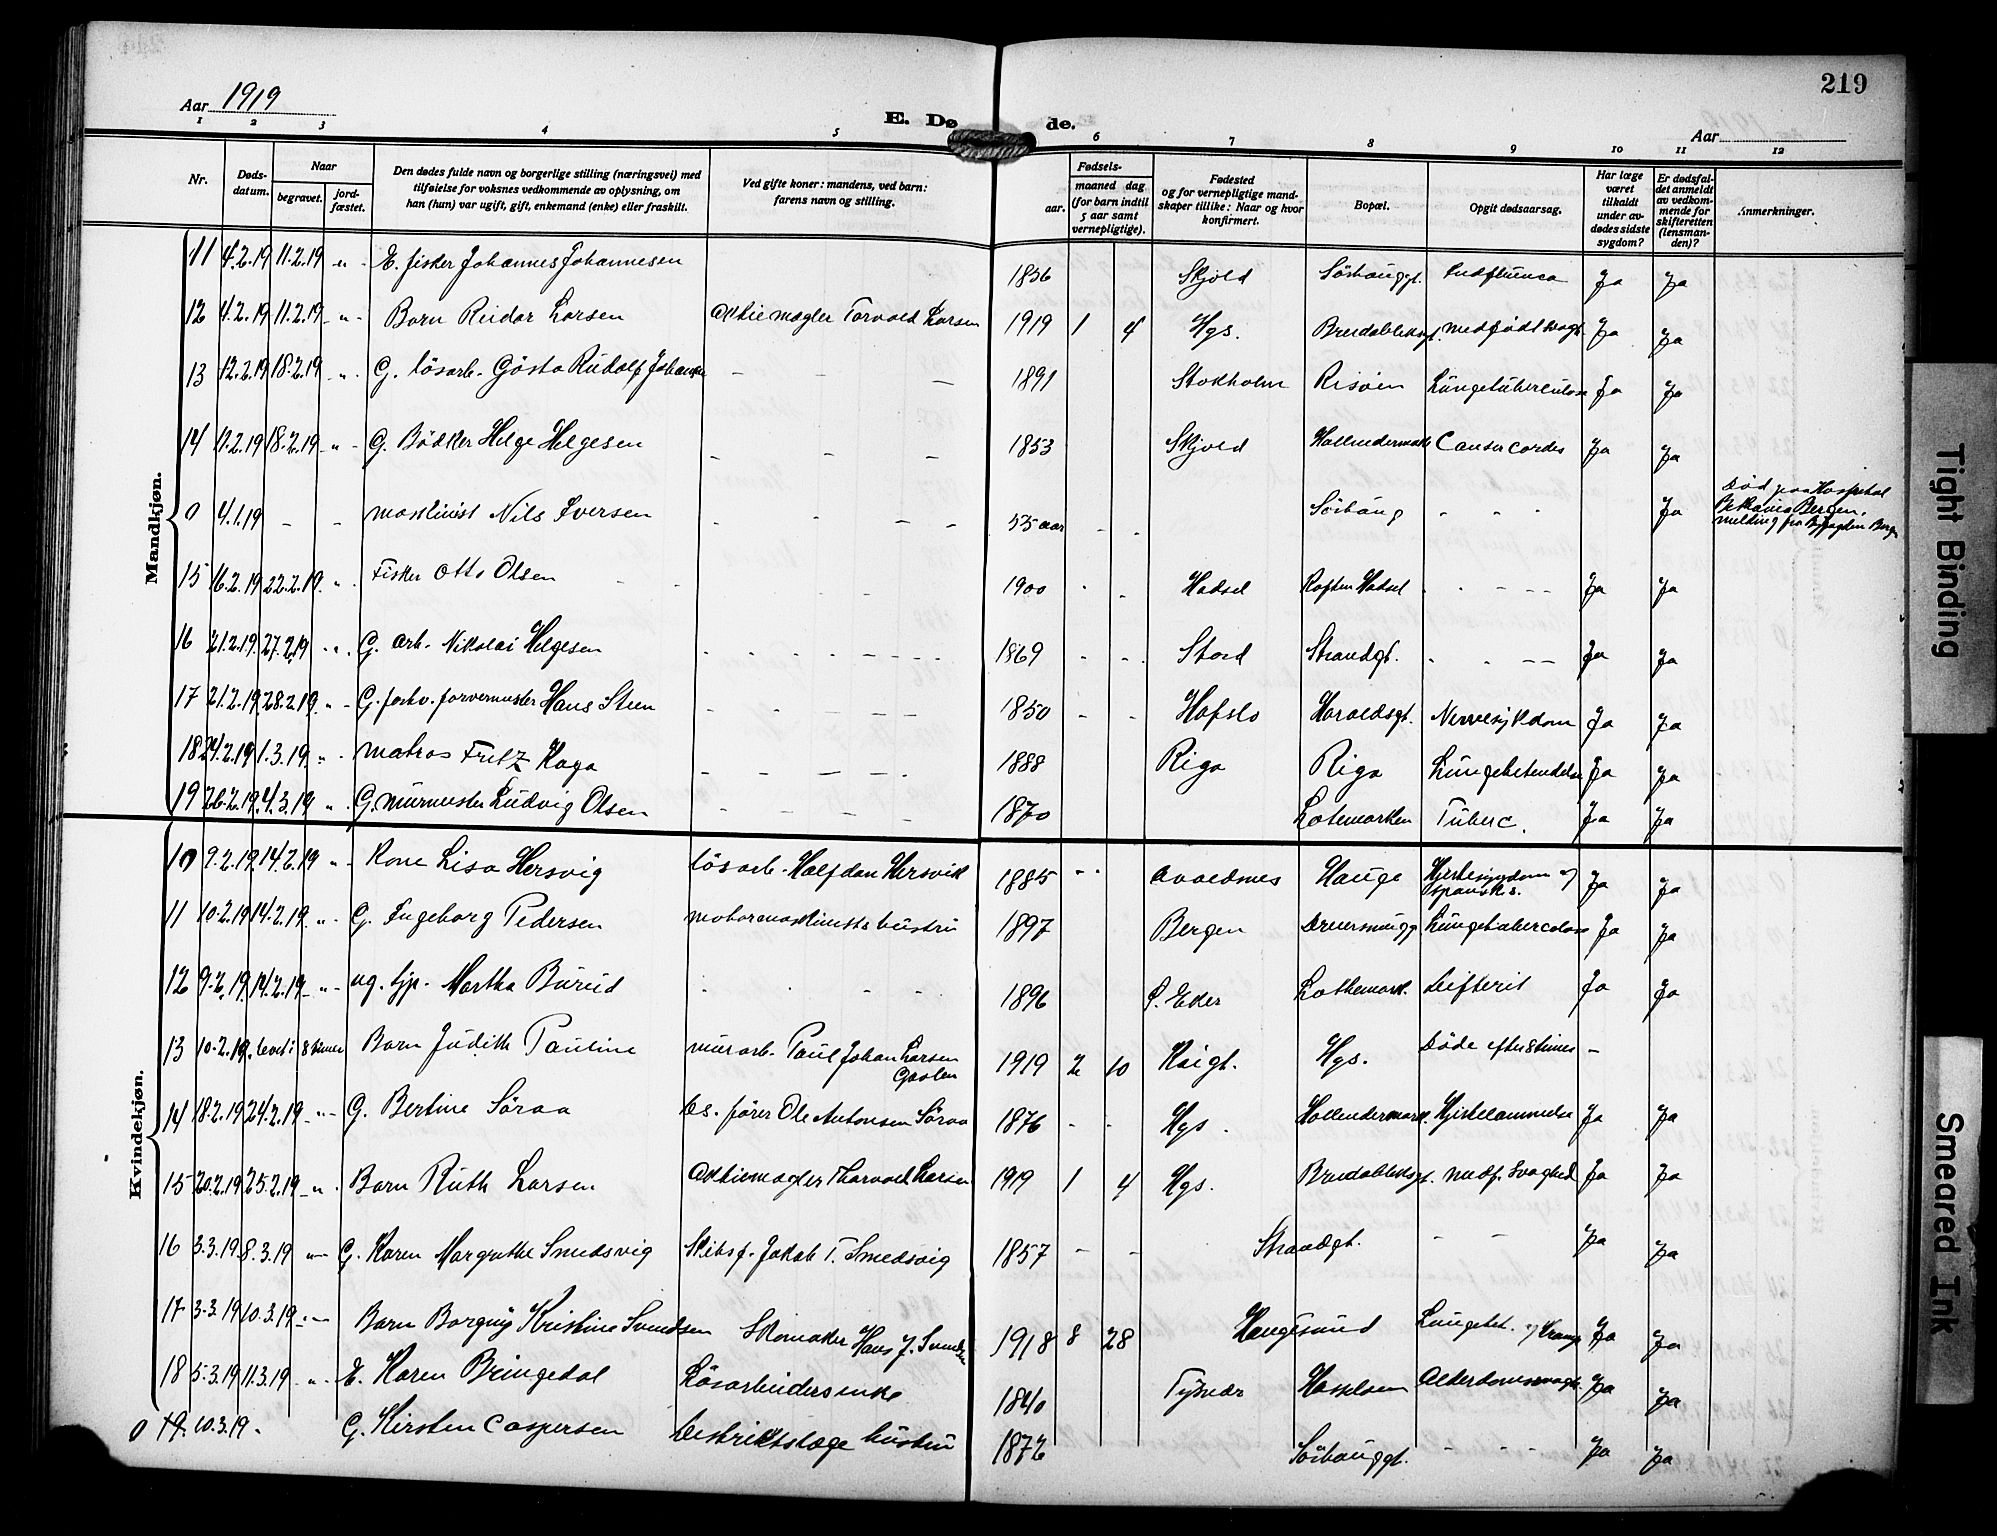 219
Aar 1919
E. Dø de.
Aar
1 2 3 4 5 6 7 8 9 10 11 12
Nr.
Døds-datum.
Naar
begravet.
jord-fæstet.
Den dødes fulde navn og borgerlige stilling (næringsvei) med
tilføielse for voksnes vedkommende av oplysning, om
han (hun) var ugift, gift, enkemand (enke) eller fraskilt.
Ved gifte koner: mandens, ved barn:
farens navn og stilling.
Fødsels-
aar.
maaned dag
(for barn indtil
5 aar samt
vernepligtige).
Fødested
og for vernepligtige mand-
skaper tillike: Naar og hvor
konfirmert.
Bopæl.
Opgit dødsaarsag.
Har læge
været
tilkaldt
under av-
dødes sidste
sygdom?
Er dødsfal-
det anmeldt
av vedkom-
mende for
skifteretten
(lensman-
den)?
Anmerkninger.
Mandkjøn.
11 4.2.19 11.2.19 -"- E. fisker Johannes Johannesen 1836 Skjold Sörhauggt. Ja Ja
12 4.2.19 11.2.19 -"- Barn Reidar Larsen Aktiemægler Torvald Larsen 1919 1 4 Hgs. medfödt svagh. Ja Ja
13 12.2.19 18.2.19 -"- G. lösarb. Gösta Rudolf Johansen - - - 1891 Stokholm Risöen Lungetuberculose Ja Ja
14 11.2.19 18.2.19 -"- G. Bödker Helge Helgesen - - - 1853 Skjold Hollendermark Cancer cordes Ja Ja
0 4.1.19 - - maskinist Nils Iversen - - - 55 aar - - Sörhaug - - - Ja Död paa Hospital
Bergen.
melding fra Byfogden Bergen
15 16.2.19 22.2.19 -"- Fisker Otto Olsen - - 1900 - - Hadsel Raften Hadsel - - - - Ja Ja
16 21.2.19 27.2.19 -"- G. arb. Nikolai Helgesen - - - - 1869 - - Stord Strandgt. - - - - Ja Ja
17 21.2.19 28.2.19 -"- G. forhv. farvermester Hans Steen - - - - 1850 - - Hafslo Haraldsgt. Nervesykdom Ja Ja
18 24.2.19 1.3.19 -"- matros Fritz Kaga - - - - 1888 Riga Riga Lungebetendelse Ja Ja
19 26.2.19 4.3.19 -"- G. murmester Ludvig Olsen - - - - 1870 Lotemarken Tuberc. Ja Ja
Kvindekjøn.
10 9.2.19 14.2.19 -"- Kone Lisa Hersvig lösarb. Halfdan Hersvik 1885 - - Avaldsnes Hauge Hjertesygdom og
spansks. Ja Ja
11 10.2.19 14.2.19 -"- G. Ingeborg Pedersen motormaskinists hustru 1897 Bergen Lungetuberculose Ja Ja
12 9.2.19 14.2.19 -"- ug. tjp. Martha Burud - - - - 1896 Ö. Eker Lothemark. Difterit Ja Ja
13 10.2.19 levet i 8 timer Barn Judith Pauline murarb. Paul Johan Larsen
1919 2 10 Kaigt. Hgs. Döde efter 8 timer -
14 18.2.19 24.2.19 -"- G. Bertine Söraa bs. förer Ole Antonsen Söraa 1876 - - Hgs. Hollendermark. Hjertelammelse Ja Ja
15 20.2.19 25.2.19 -"- Barn Ruth Larsen Aktiemægler Thorvald Larsen 1919 1 4 Hgs. Breidablikgt. medf. Svaghed Ja Ja
16 3.3.19 8.3.19 -"- G. Karen Margrethe Smedsvig Skibsf. Jakob T. Smedsvig 1857 - - Strandgt. - - Ja Ja
17 3.3.19 10.3.19 -"- Barn Borgny Kristine Svendsen Skomaker Hans J. Svendsen 1918 8 28 Haugesund Lungebet. og Krampe Ja Ja
18 5.3.19 11.3.19 -"- E. Karen Bringedal Lösarbeidersenke 1840 Tysnæs Hasseløen Alderdomssvagh. Ja Ja
0 19. 10.3.19. G. Kirsten Caspersen Distriktslæge hustru 1872 Sörhauggt. - - - Ja Ja
Tight Binding
Smeared Ink